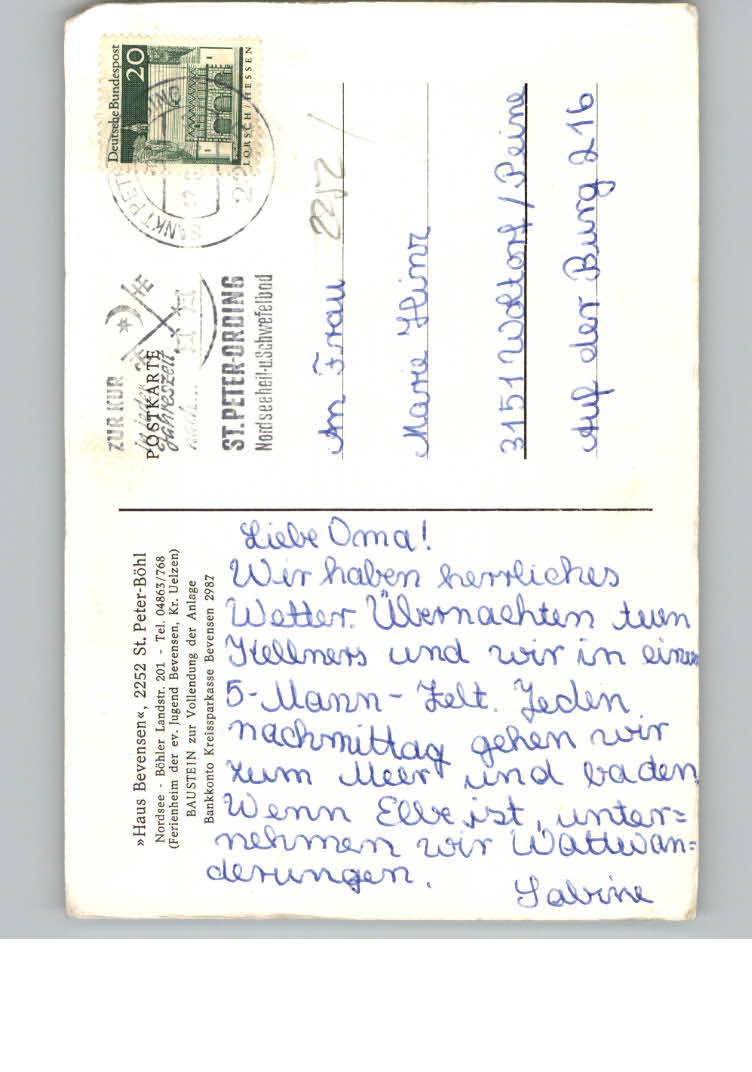 »Haus Bevensen«, 2252 St. Peter-Böhl
Nordsee - Böhler Landstr. 201 - Tel. 04863/768
(Ferienheim der ev. Jugend Bevensen, Kr. Uelzen)
BAUSTEIN zur Vollendung der Anlage
Bankkonto Kreissparkasse Bevensen 2987
Liebe Oma!
Wir haben herrliches
Wetter. Übernachten tuen
Kellners und wir in einem
5-Mann-Zelt. Jeden
nachmittag gehen wir
zum Meer und baden.
Wenn Elbe ist, unter=
nehmen wir Wattwan=
derungen.
Sabine
POSTKARTE
ZUR KUR
in jeder
Jahreszeit
nach...
ST.PETER-ORDING
Nordseeheil-u.Schwefelbad
Deutsche Bundespost
20
LORSCH/HESSEN
SANKT PETER
2252
An Frau
Marie
3151 Woltorf/Peine
Auf der Burg 216